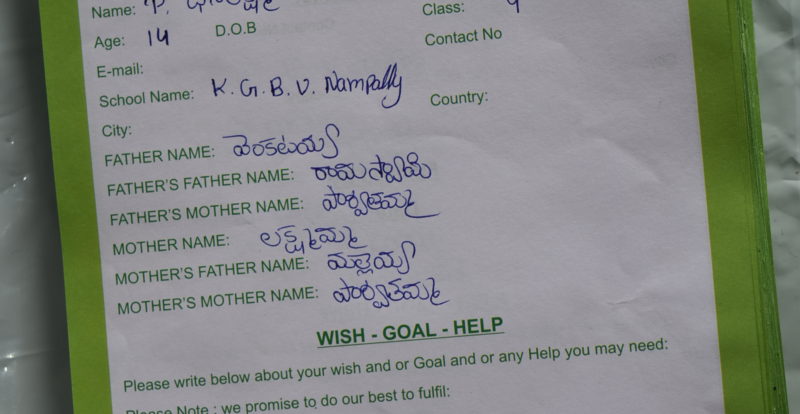 Name: Class: 9
Age: 14 D.O.B Contact No
E-mail:
School Name: K. G. B. V. Nampally Country:
City:
FATHER NAME: వెంకటయ్య
FATHER'S FATHER NAME: రామస్వామి
FATHER'S MOTHER NAME: పార్వతమ్మ
MOTHER NAME: లక్ష్మమ్మ
MOTHER'S FATHER NAME: మల్లెయ్య
MOTHER'S MOTHER NAME: పార్వతమ్మ
WISH - GOAL - HELP
Please write below about your wish and or Goal and or any Help you may need:
Please Note : we promise to do our best to fulfil: